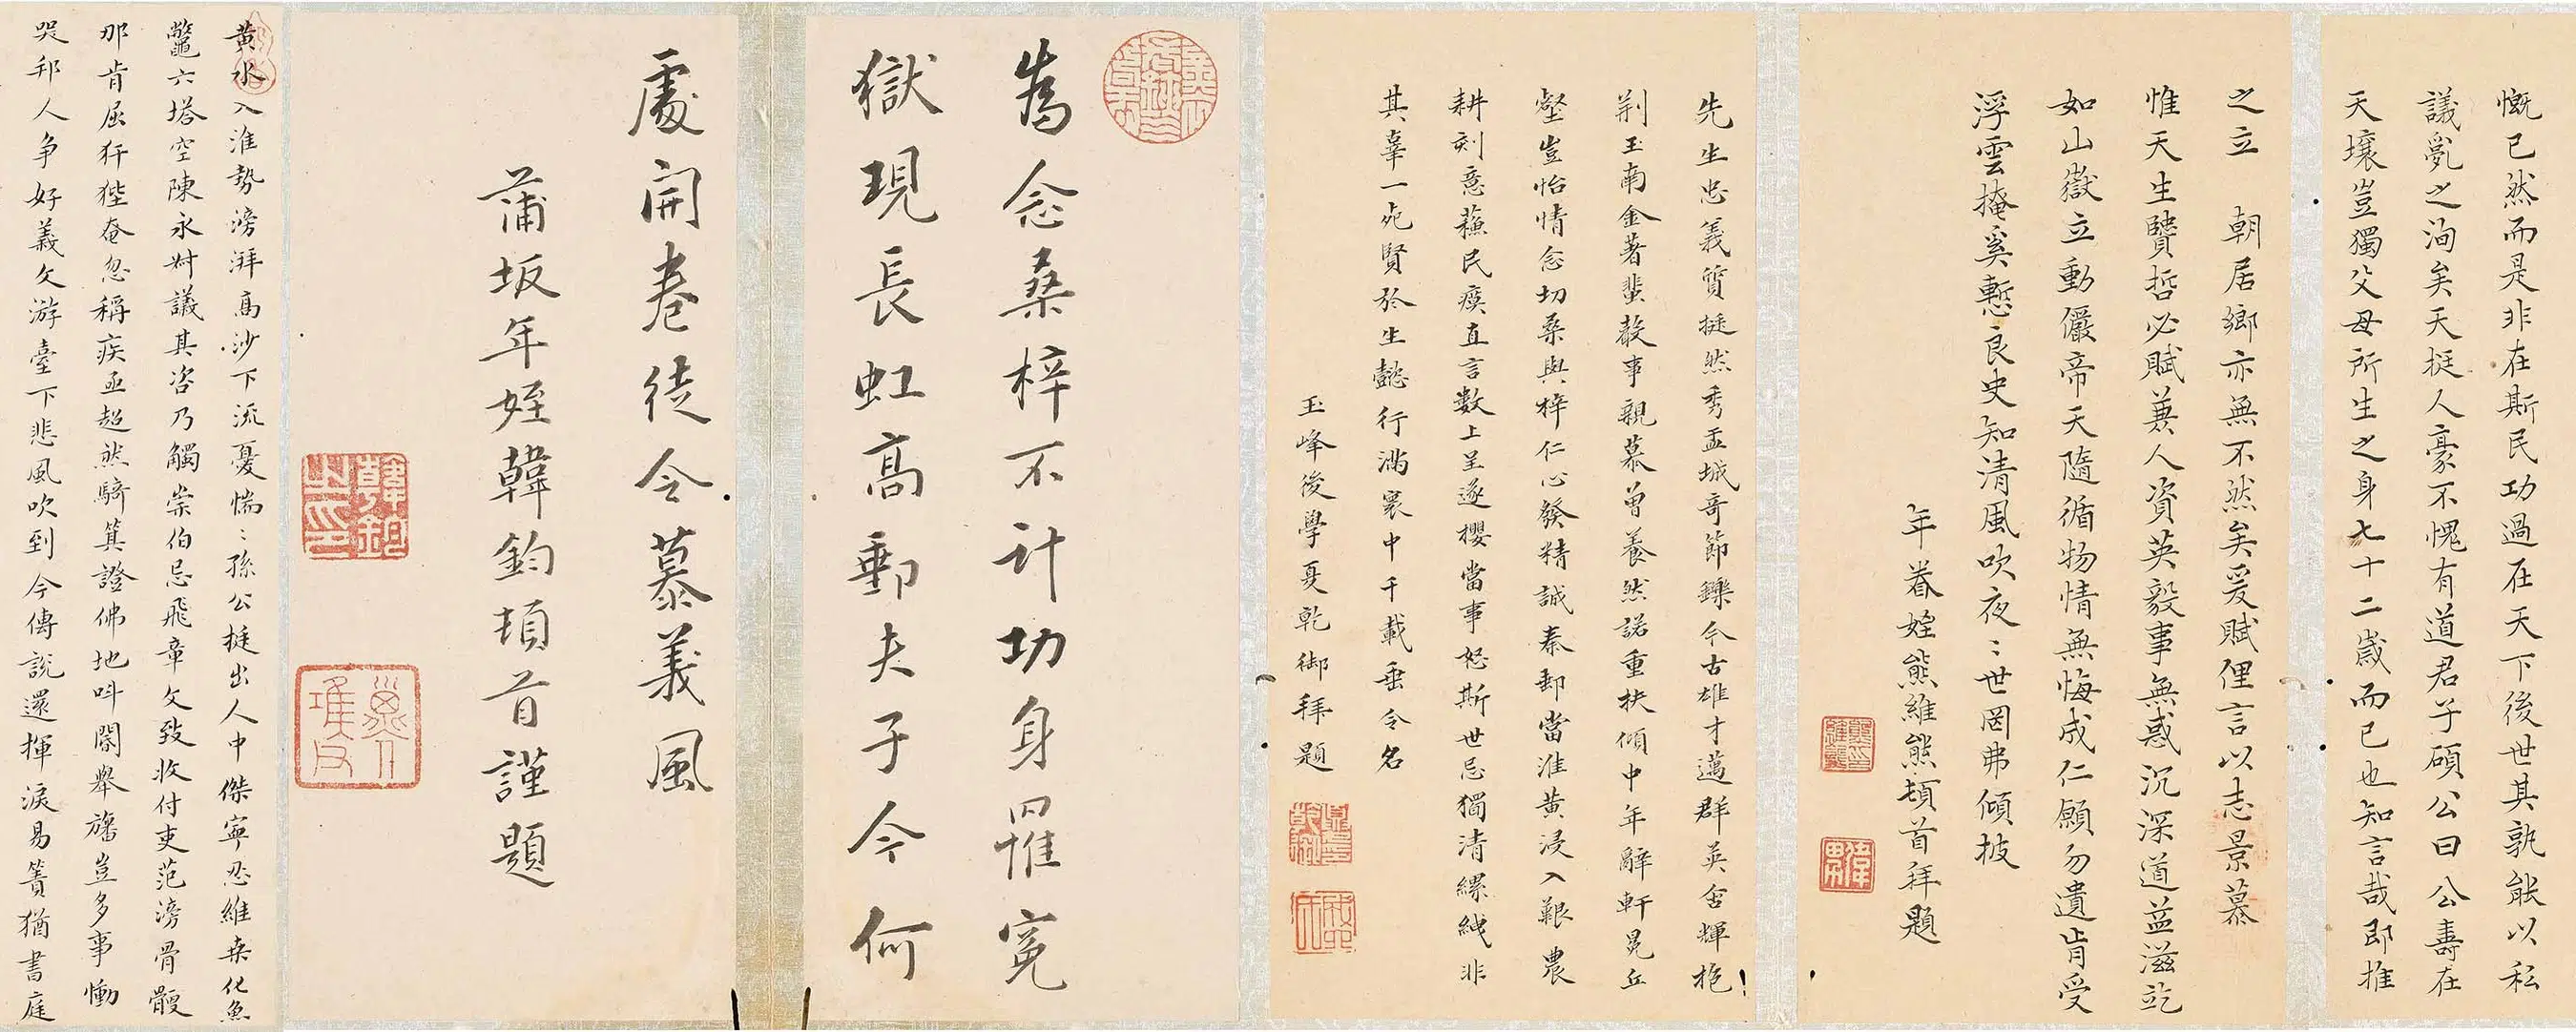 慨已然而是非在斯民功過在天下後世其孰能以私
議亂之洵矣天挺人豪不愧有道君子碩公曰公壽在
天壤豈獨父母所生之身七十二歲而已也知言哉即推
之立　朝居鄉亦無不然矣爰賦俚言以志景慕
惟天生賢哲必賦異人資英毅事無惑沉深道益滋屹
如山嶽立動儼帝天隨循物情無悔成仁願勿遺肯受
浮雲掩奚慙良史知清風吹夜〻世罔弗傾披
年眷姪熊維熊頓首拜題
先生忠義質挺然秀盂城奇節鑠今古雄才邁群英含輝抱
荆玉南金著蜚聲事親慕曾養然諾重扶傾中年辭軒冕丘
壑豈怡情念切桑與梓仁心發精誠秦郵當淮黃浸入艱農
耕刻意蘓民瘼直言数上呈遂攖當事怒斯世忌獨清縲絏非
其辜一死賢於生懿行滿寰中千載垂令名
玉峰後學夏乾御拜題
為念桑梓不计功身罹冤
獄現長虹高郵夫子今何
處開卷徒令慕義風
蒲坂年姪韓鈞頓首謹題
韓鈞之印
黃水入淮勢滂湃高沙下流憂惴〻孫公挺出人中傑寧忍維桑化魚
鼈六塔空陳永叔議其咨乃觸崇伯忌飛章文致收付吏范滂骨骾
那肯屈犴狴奄忽稱疾亟超然騎箕證佛地叫閽舉旛豈多事慟
哭邦人争好義文游臺下悲風吹到今傳說還揮淚易簀猶書庭